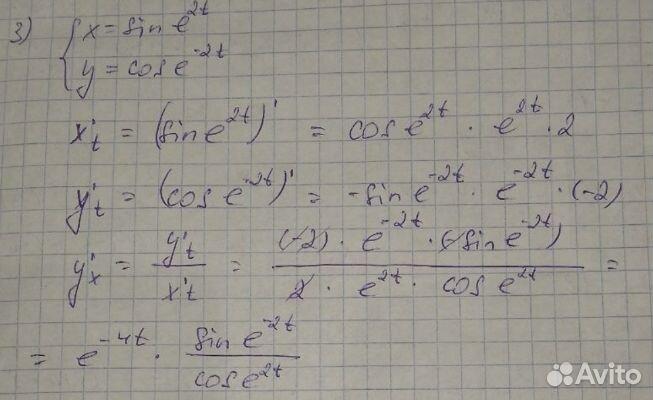 3) { x = sin e^{2t}
y = cos e^{-2t}
x't = (sin e^{2t})' = cos e^{2t} · e^{2t} · 2
y't = (cos e^{-2t})' = -sin e^{-2t} · e^{-2t} · (-2)
y'x = y't / x't = (-2) · e^{-2t} · (-sin e^{-2t}) / 2 · e^{2t} · cos e^{2t} =
= e^{-4t} · sin e^{-2t} / cos e^{2t}
Avito